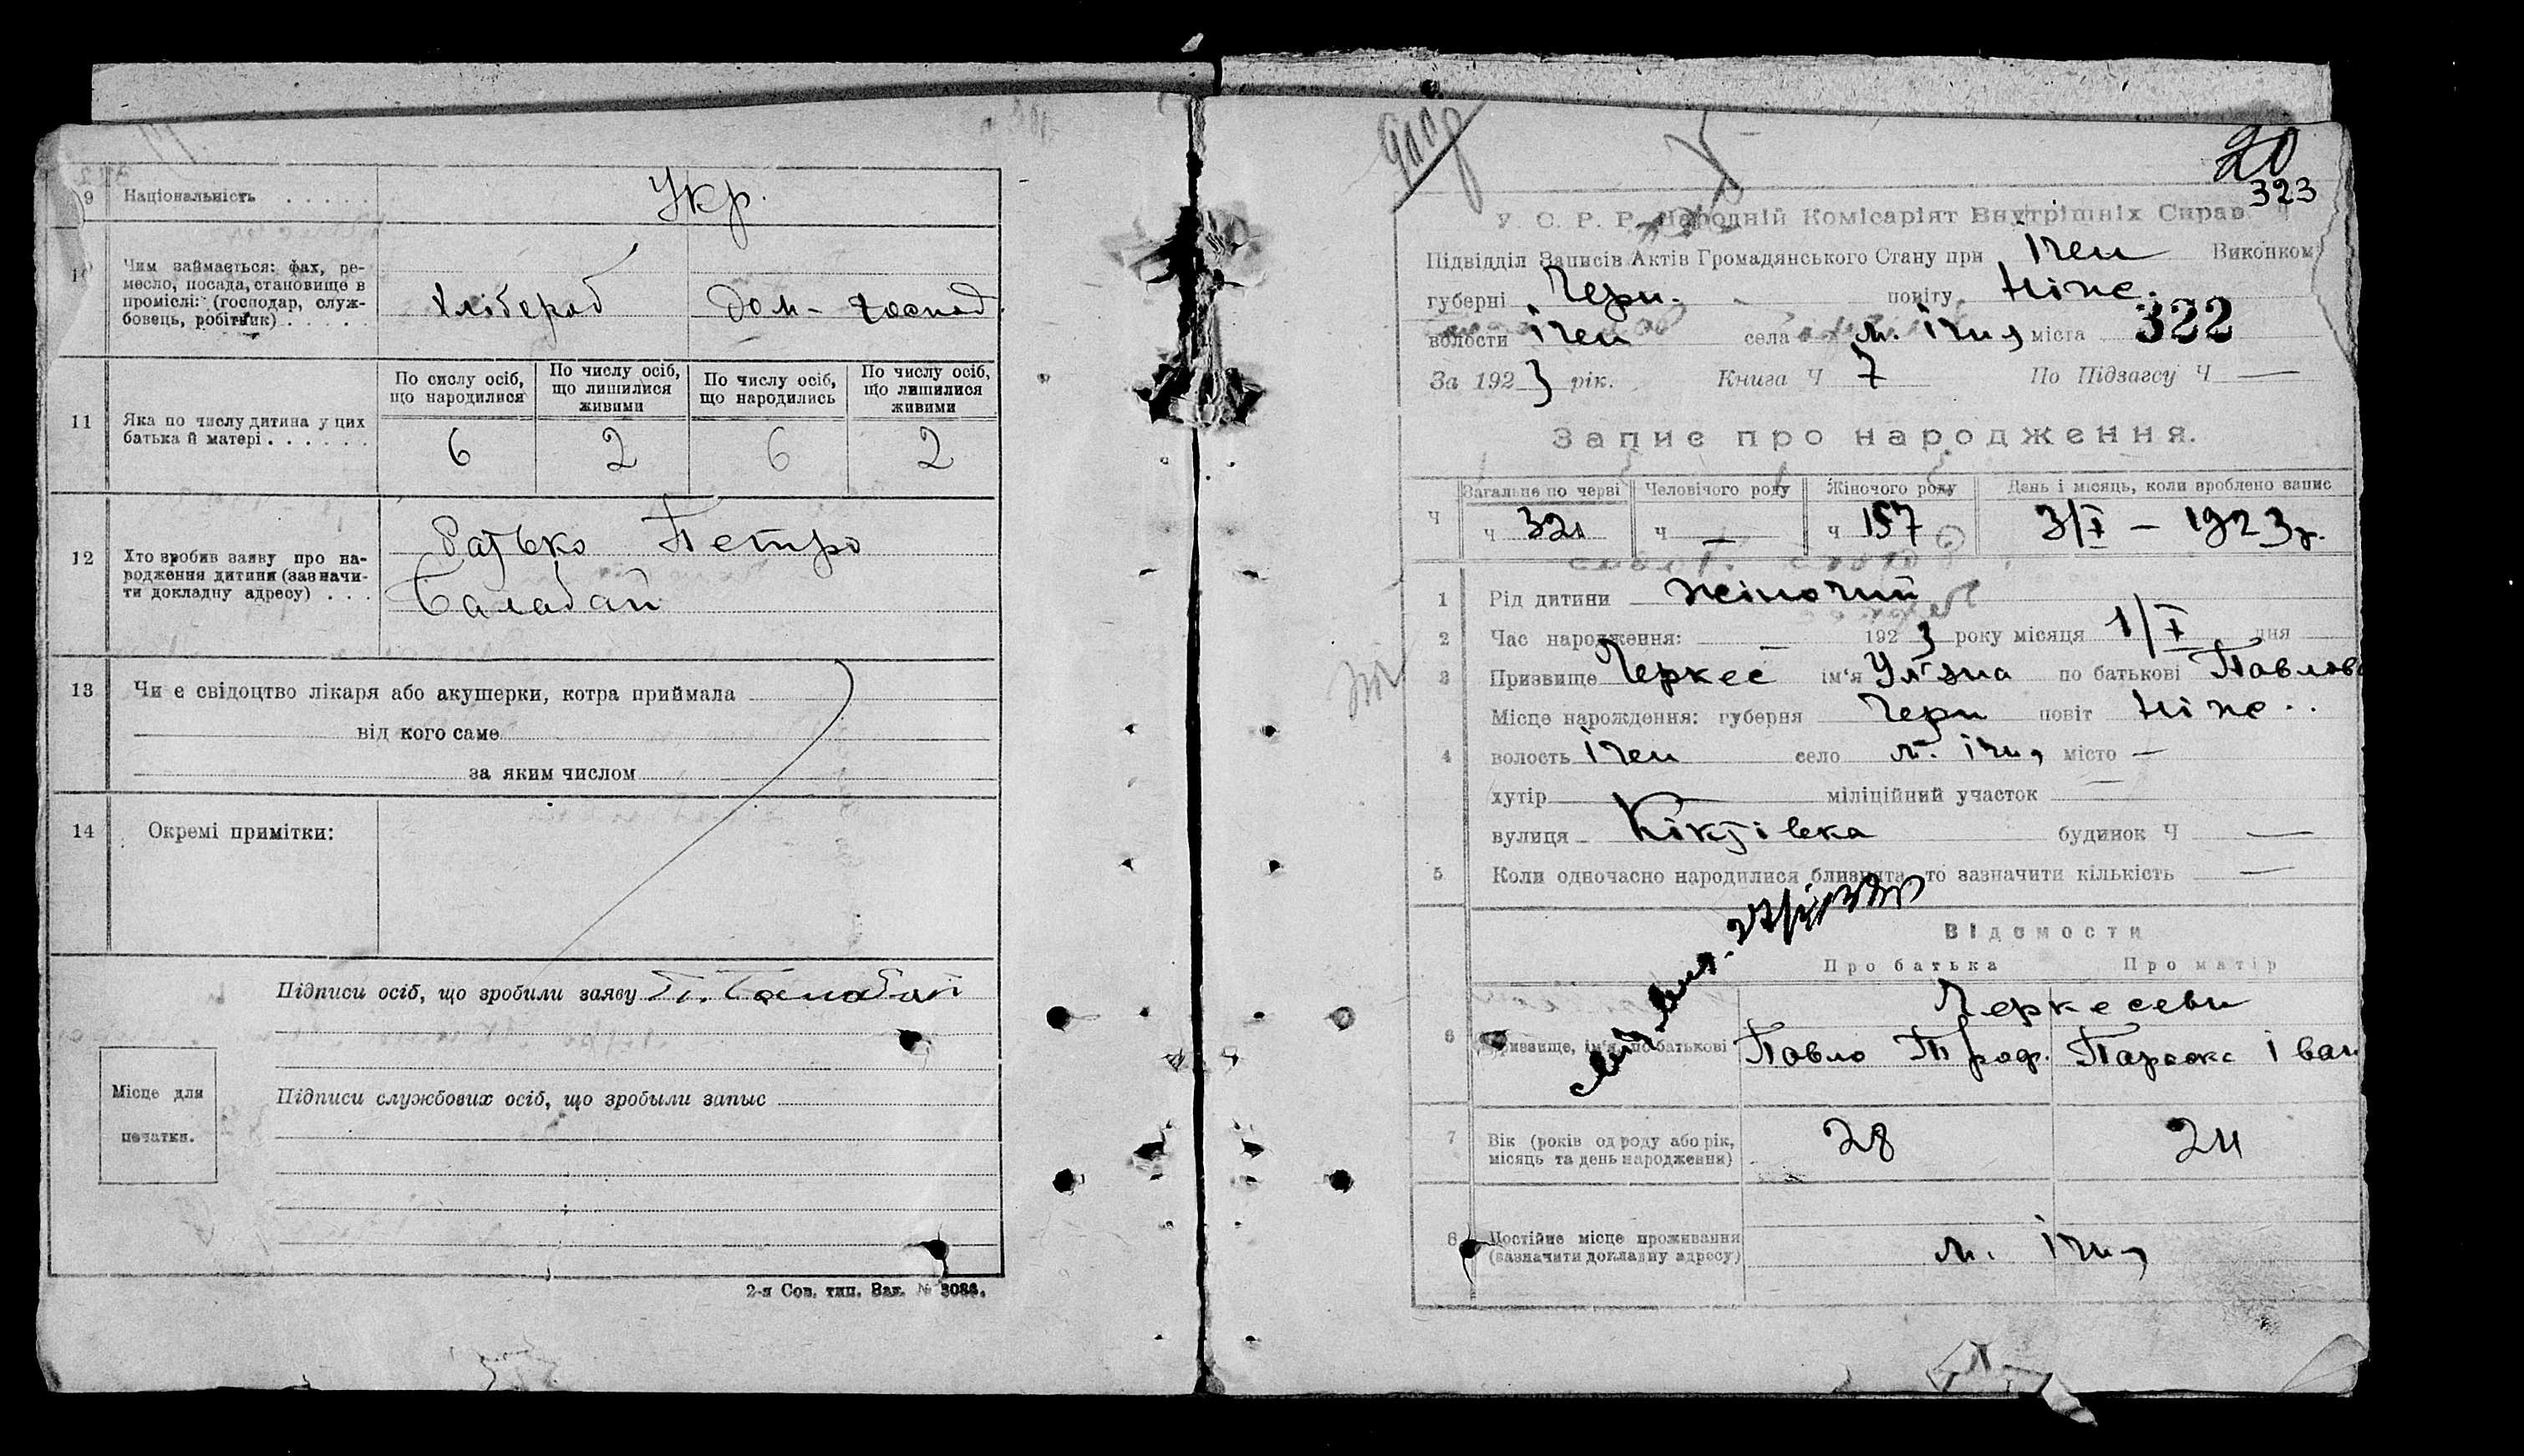 9 Національність . . . . . Укр.
10 Чим займається: фах, ре-
месло, посада, становище в
промислі: (господар, служ-
бовець, робітник) . . . . . Хлібороб Дом- господ.
По сислу осіб, що народилися
По числу осіб, що лишилися живими
По числу осіб, що народились
По числу осіб, що лишилися живими
11 Яка по числу дитина у цих
батька й матері . . . . . . 6 2 6 2
12 Хто зробив заяву про на-
родження дитини (зазначи-
ти докладну адресу) . . .
Батько Петро
Балабан
13 Чи є свідоцтво лікаря або акушерки, котра приймала
від кого саме
за яким числом
14 Окремі примітки:
Підписи осіб, що зробили заяву П. Балабан
Місце для
печатки.
Підписи службових осіб, що зробыли запыс
2-я Сов. тип. Зак. № 3086.
20
323
У. С. Р. Р. Народній Комісаріят Внутрішніх Справ.
Підвідділ Записів Актів Громадянського Стану при Ічен Виконком
губерні Черн. повіту Ніже.
волости Ічен села м. Ічня міста 322
За 1923 рік. Книга Ч 7 По Підзагсу Ч —
Запис про народження.
Загальне по черві Человічого роду Жіночого роду День і місяць, коли зроблено запис
Ч ч 321 ч — ч 157 3/X — 1923 г.
1 Рід дитини жіночий
2 Час народження: 1923 року місяця 1/X дня
3 Призвище Черкес ім'я Уляна по батькові Павлов
Місце народження: губерня Черн повіт Ніже.
4 волость Ічен село м. Ічня місто —
хутір міліційний участок —
вулиця будинок Ч —
5 Коли одночасно народилися близнята, то зазначити кількість —
Відомости
Про батька Про матір
Черкесеви
6 Призвище, ім'я, по батькові Павло Троф. Параск Іван
7 Вік (років од роду або рік,
місяць та день народження) 28 24
8 Постійне місце проживання
(зазначити докладну адресу) м. Ічня